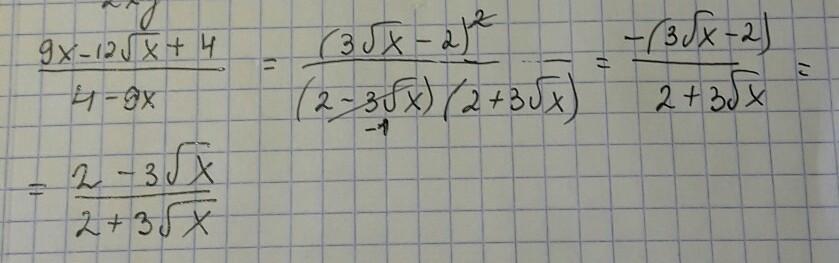 (9x-12√x+4)/(4-9x) = (3√x-2)²/((2-3√x)(2+3√x)) = -(3√x-2)/(2+3√x) =
-1
= (2-3√x)/(2+3√x)